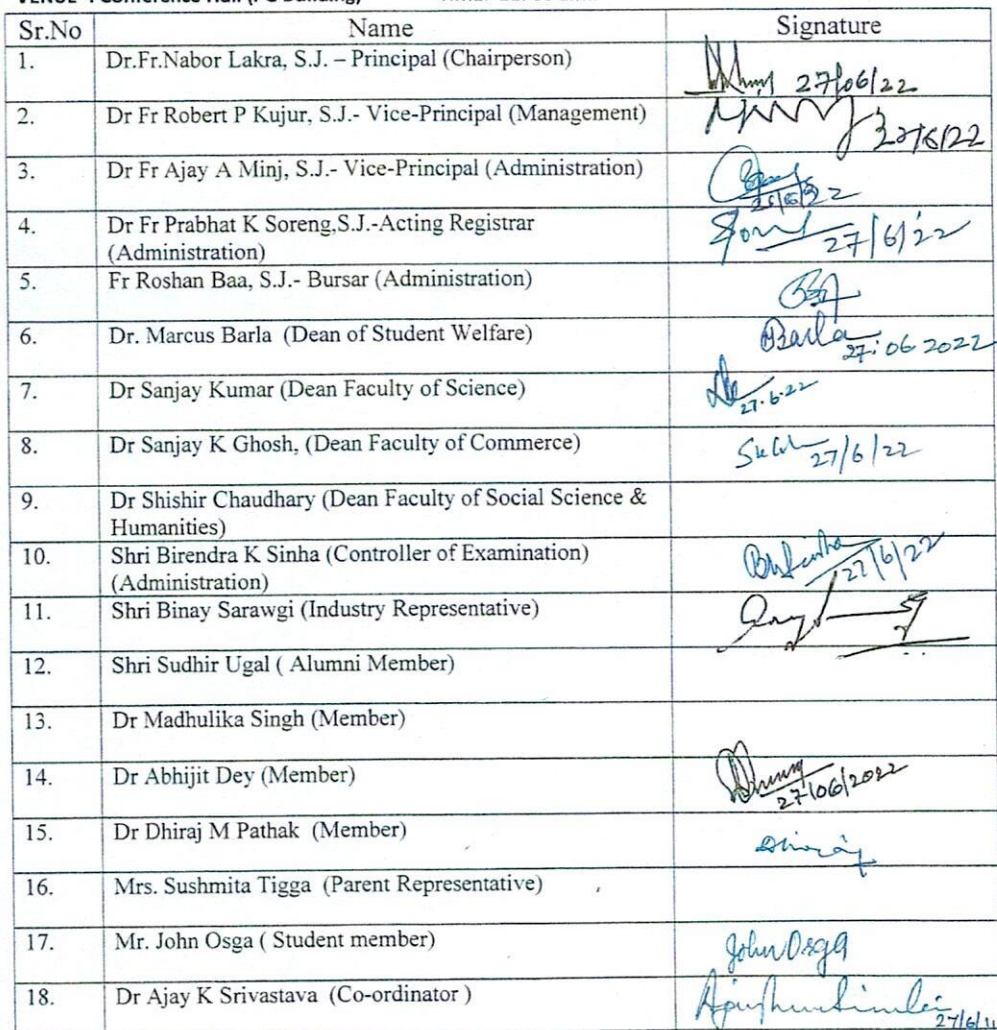 VENUE : Conference Hall (PG Building)
Sr.No Name Signature
1. Dr.Fr.Nabor Lakra, S.J. – Principal (Chairperson) 27/06/22
2. Dr Fr Robert P Kujur, S.J.- Vice-Principal (Management) 27/6/22
3. Dr Fr Ajay A Minj, S.J.- Vice-Principal (Administration)
4. Dr Fr Prabhat K Soreng,S.J.-Acting Registrar 27/6/22
(Administration)
5. Fr Roshan Baa, S.J.- Bursar (Administration)
6. Dr. Marcus Barla (Dean of Student Welfare) Barla
27.06.2022
7. Dr Sanjay Kumar (Dean Faculty of Science) 27.6.22
8. Dr Sanjay K Ghosh, (Dean Faculty of Commerce) 27/6/22
9. Dr Shishir Chaudhary (Dean Faculty of Social Science &
Humanities)
10. Shri Birendra K Sinha (Controller of Examination) 27/6/22
(Administration)
11. Shri Binay Sarawgi (Industry Representative)
12. Shri Sudhir Ugal ( Alumni Member)
13. Dr Madhulika Singh (Member)
14. Dr Abhijit Dey (Member) 27/06/2022
15. Dr Dhiraj M Pathak (Member) Dhiraj
16. Mrs. Sushmita Tigga (Parent Representative)
17. Mr. John Osga ( Student member) John Osga
18. Dr Ajay K Srivastava (Co-ordinator )